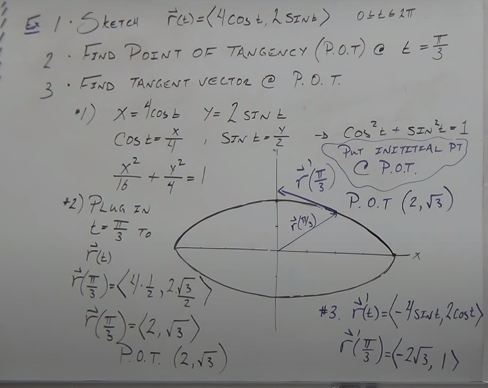 Ex 1. SKETCH r⃗(t)=⟨4cost, 2sint⟩ 0≤t≤2π
2. FIND POINT OF TANGENCY (P.O.T) @ t = π/3
3. FIND TANGENT VECTOR @ P.O.T.
#1) X = 4cost Y = 2sint
Cost = x/4 , Sint = y/2 → Cos²t + sin²t = 1
x²/16 + y²/4 = 1
PUT INITITIAL PT
@ P.O.T.
r⃗'(π/3)
P.O.T (2, √3)
r⃗(π/3)
y
x
#2) PLUG IN
t = π/3 TO
r⃗(t)
r⃗(π/3) = ⟨4·1/2, 2√3/2⟩
r⃗(π/3) = ⟨2, √3⟩
P.O.T. (2, √3)
#3. r⃗'(t) = ⟨-4sint, 2cost⟩
r⃗'(π/3) = ⟨-2√3, 1⟩